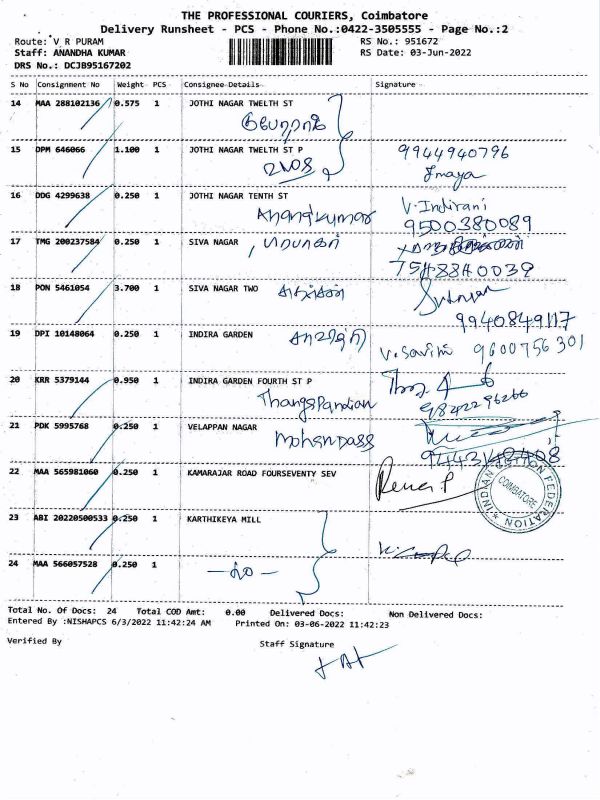 THE PROFESSIONAL COURIERS, Coimbatore
Delivery Runsheet - PCS - Phone No.:0422-3505555 - Page No.:2
Route: V R PURAM RS No.: 951672
Staff: ANANDHA KUMAR RS Date: 03-Jun-2022
DRS No.: DCJB95167202
S No Consignment No Weight PCS Consignee Details Signature
14 MAA 288102136 0.575 1 JOTHI NAGAR TWELTH ST
15 DPM 646066 1.100 1 JOTHI NAGAR TWELTH ST P 9944940796
16 DDG 4299638 0.250 1 JOTHI NAGAR TENTH ST V. Indirani
Anandkumar 9500380089
17 TMG 200237584 0.250 1 SIVA NAGAR
7548840039
18 PON 5461054 3.700 1 SIVA NAGAR TWO
9940849117
19 DPI 10148064 0.250 1 INDIRA GARDEN சாவித்ரி V. Savitri 9600756301
20 KRR 5379144 0.950 1 INDIRA GARDEN FOURTH ST P
Thangapandian 9842296266
21 PDK 5995768 0.250 1 VELAPPAN NAGAR
Mohandass 9443148408
22 MAA 565981060 0.250 1 KAMARAJAR ROAD FOURSEVENTY SEV
INDIAN COTTON FEDERATION
COIMBATORE
23 ABI 20220500533 0.250 1 KARTHIKEYA MILL
24 MAA 566057528 0.250 1 - do -
Total No. Of Docs: 24 Total COD Amt: 0.00 Delivered Docs: Non Delivered Docs:
Entered By :NISHAPCS 6/3/2022 11:42:24 AM Printed On: 03-06-2022 11:42:23
Verified By Staff Signature